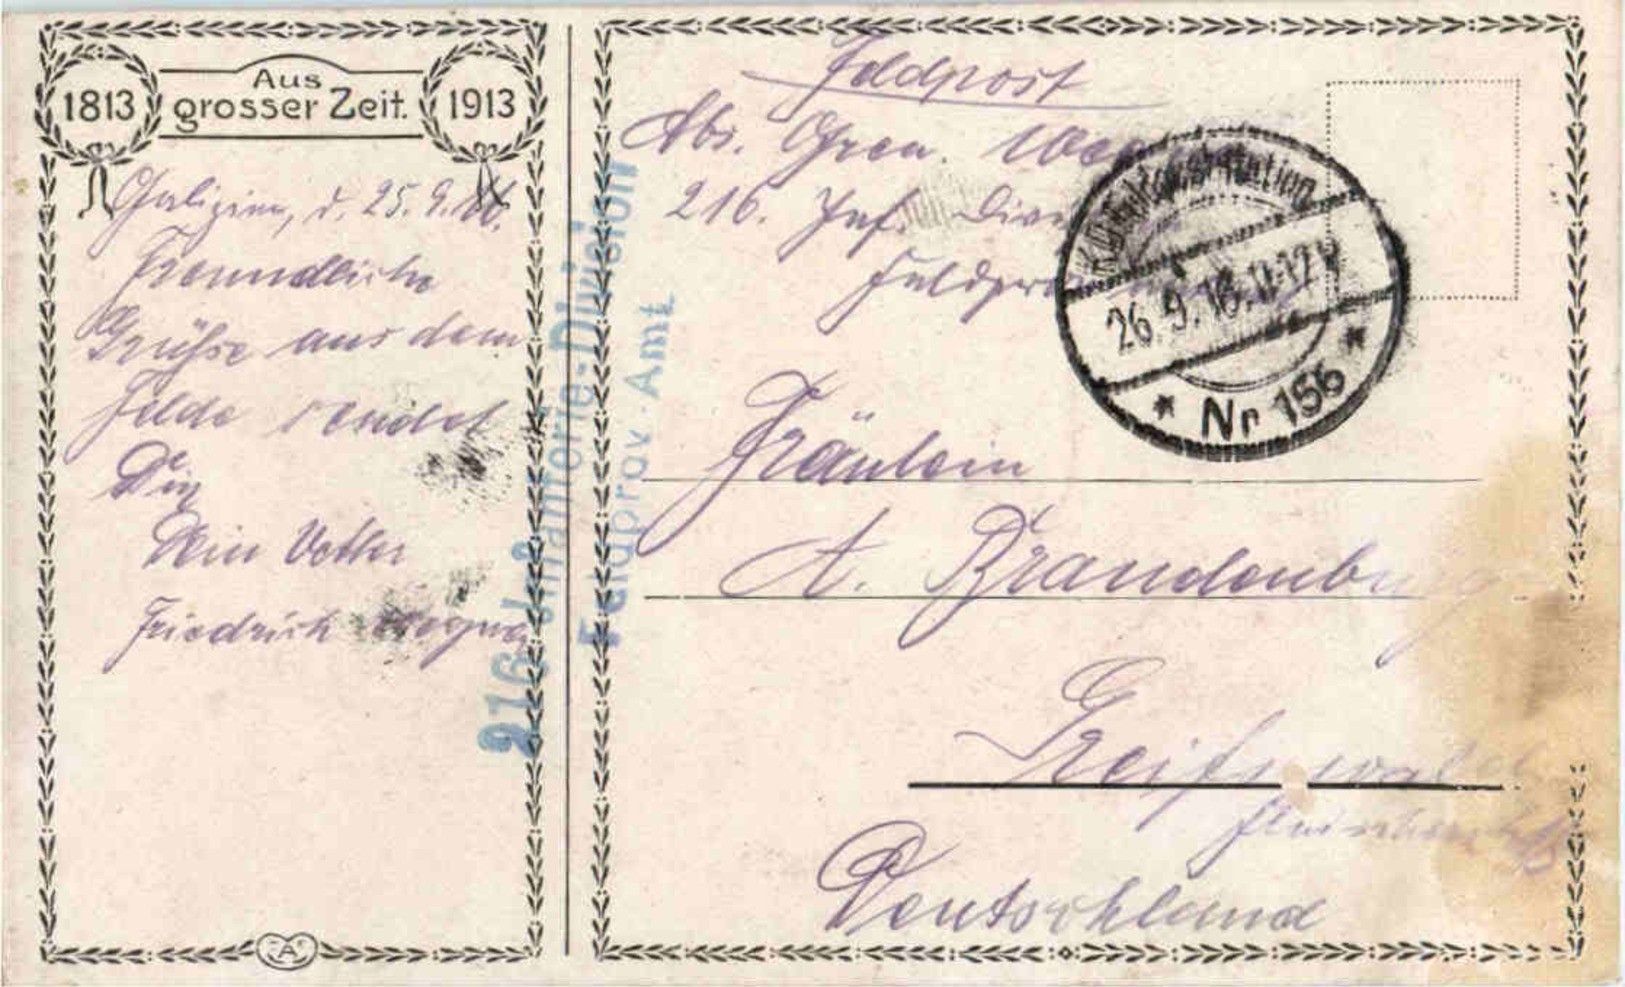 1813
Aus
grosser Zeit.
1913
Galizien, d. 25.9.16.
Freundliche
Grüße aus dem
Felde sendet
Dir
Dein Vetter
Friedrich
216. Infanterie-Division
Feldprov.-Amt
Feldpost
Abs. Gren.
216. Inf. Div.
K.D. Feldpoststation
26.9.16. 11-12 V
Nr 156
Fräulein
A. Brandenburg
Greifswald
Deutschland
A